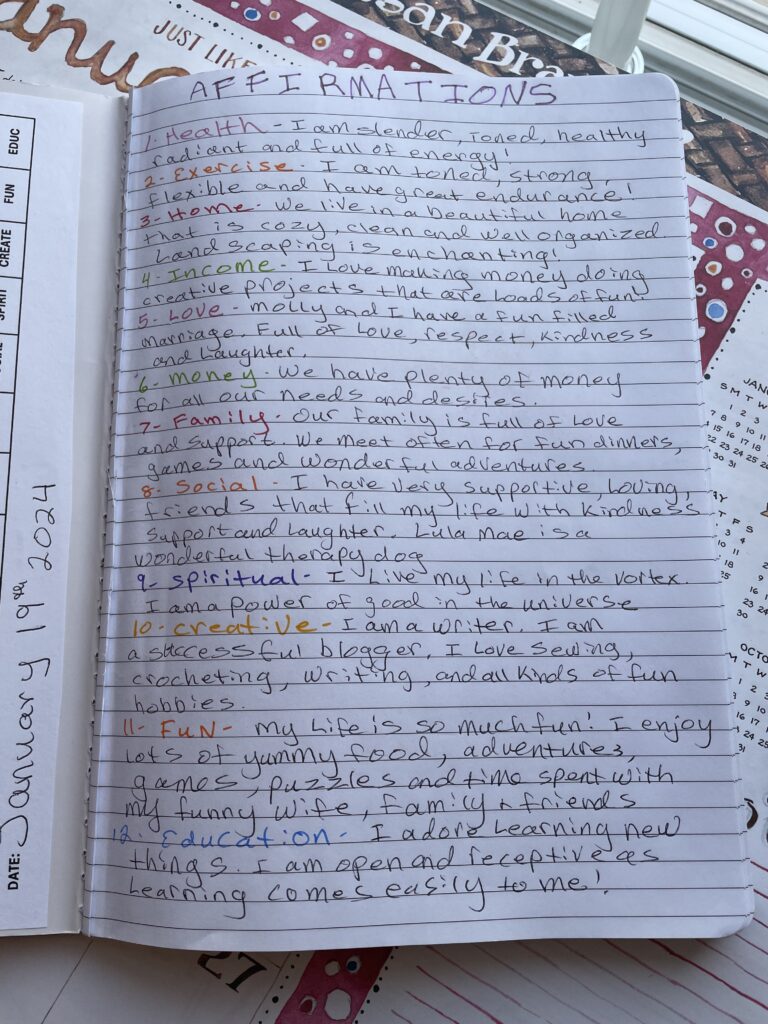 JUST LIKE
AFFIRMATIONS
1. Health - I am slender, toned, healthy
radiant and full of energy!
2- Exercise - I am toned, strong,
flexible and have great endurance!
3- Home - We live in a beautiful home
that is cozy, clean and well organized
Landscaping is enchanting!
4- Income - I Love making money doing
creative projects that are loads of fun!
5. Love - Molly and I have a fun filled
marriage. Full of Love, respect, kindness
and Laughter.
6- Money - We have plenty of money
for all our needs and desires.
7- Family - Our family is full of Love
and support. We meet often for fun dinners,
games and wonderful adventures.
8- Social - I have very supportive, Loving,
friends that fill my life with kindness
support and Laughter. Lula Mae is a
wonderful therapy dog
9- Spiritual - I Live my life in the vortex.
I am a power of good in the universe
10- Creative - I am a writer. I am
a successful blogger. I Love sewing,
crocheting, writing, and all kinds of fun
hobbies.
11- FUN - My Life is so much fun! I enjoy
Lots of yummy food, adventures,
games, puzzles and time spent with
my funny wife, family + friends
12. Education - I adore Learning new
things. I am open and receptive as
Learning comes easily to me!
EDUC
FUN
CREATE
SPIRIT
DATE: January 19th 2024
27